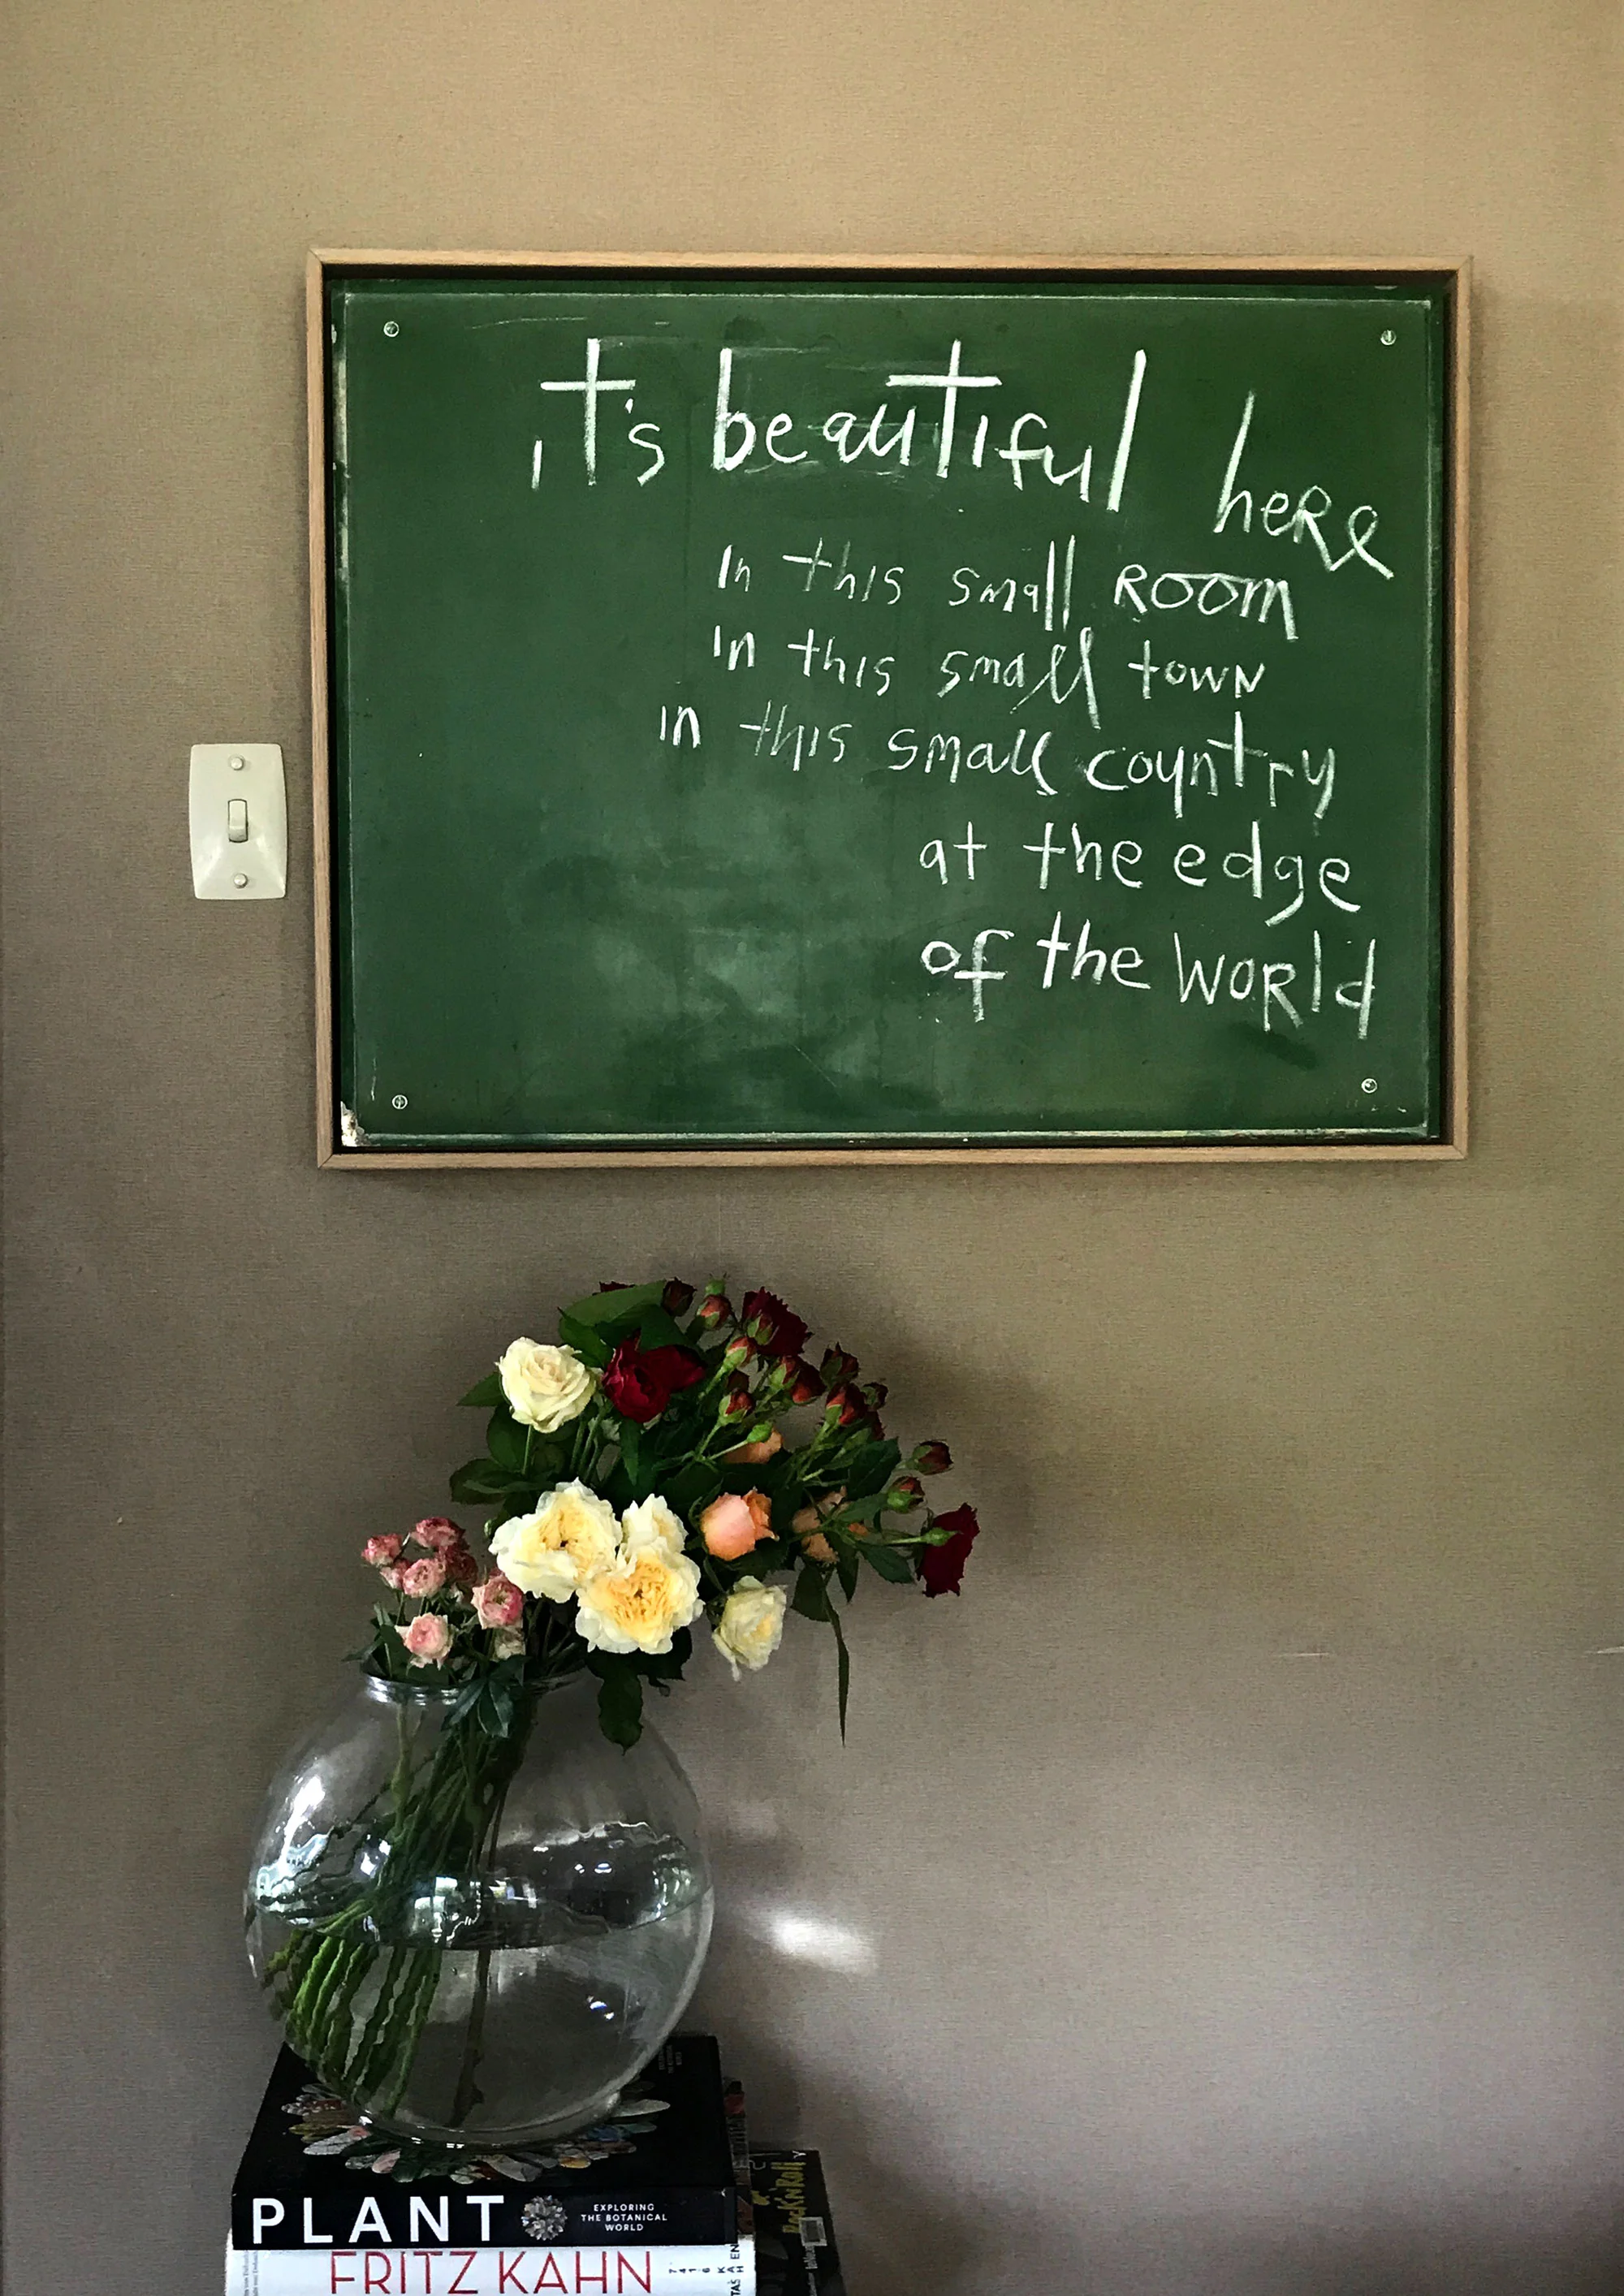 it's beautiful here
In this small ROOM
In this small town
in this small country
at the edge
of the WORld
PLANT
EXPLORING
THE BOTANICAL
WORLD
FRITZ KAHN
Rock'N'Roll